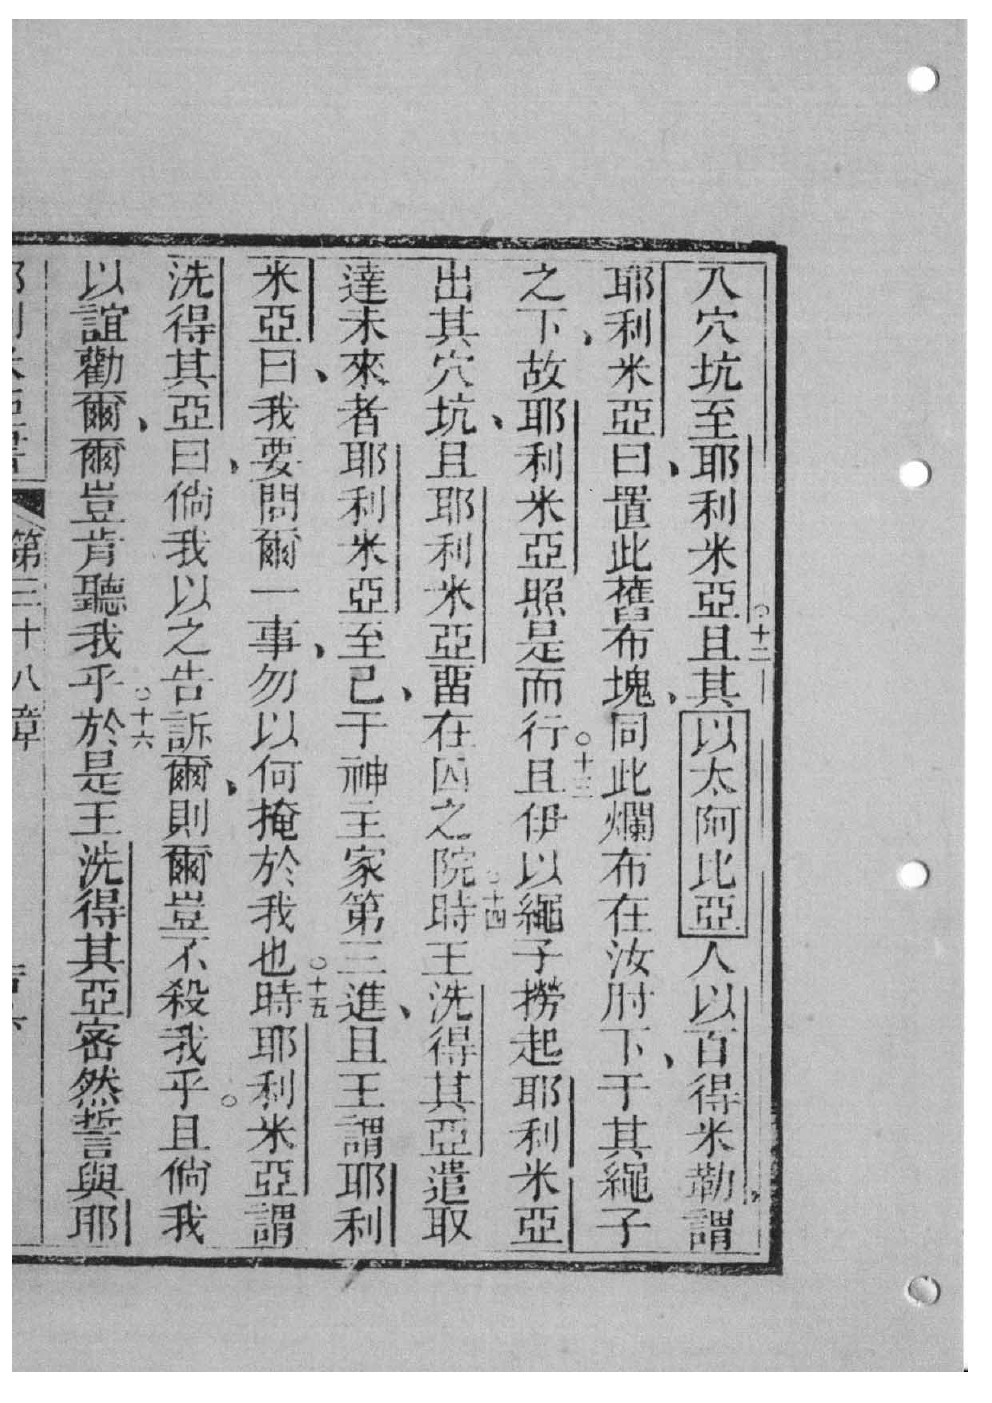 入穴坑至耶利米亞○十二且其以太阿比亞人以百得米勒謂
耶利米亞曰置此舊布塊同此爛布在汝肘下于其繩子
之下故耶利米亞照是而行○十三且伊以繩子撈起耶利米亞
出其穴坑且耶利米亞畱在囚之院○十四時王洗得其亞遣取
達未來者耶利米亞至已于神主家第三進且王謂耶利
米亞曰我要問爾一事勿以何掩於我也○十五時耶利米亞謂
洗得其亞曰倘我以之告訴爾則爾豈不殺我乎○且倘我
以誼勸爾爾豈肯聽我乎○十六於是王洗得其亞密然誓與耶
耶利米亞書 第三十八章